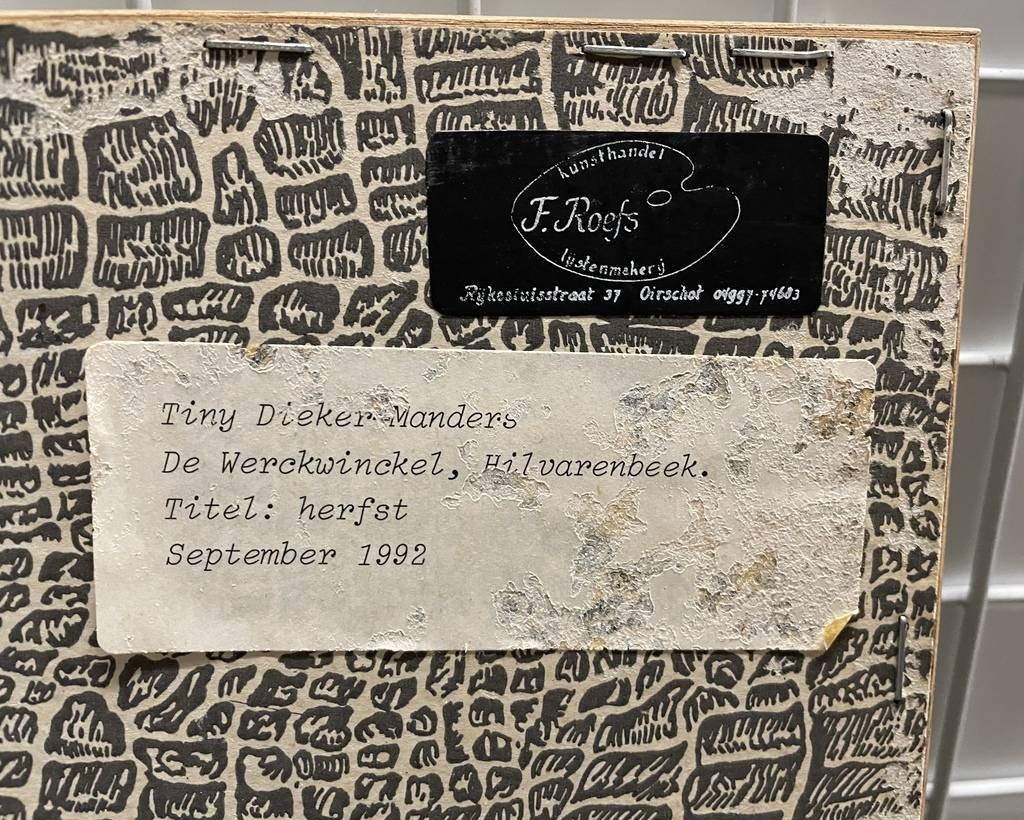 kunsthandel
F. Roefs
lystenmakery
Rijkesluisstraat 37 Oirschot 04997-74683
Tiny Dieker-Manders
De Werckwinckel, Hilvarenbeek.
Titel: herfst
September 1992